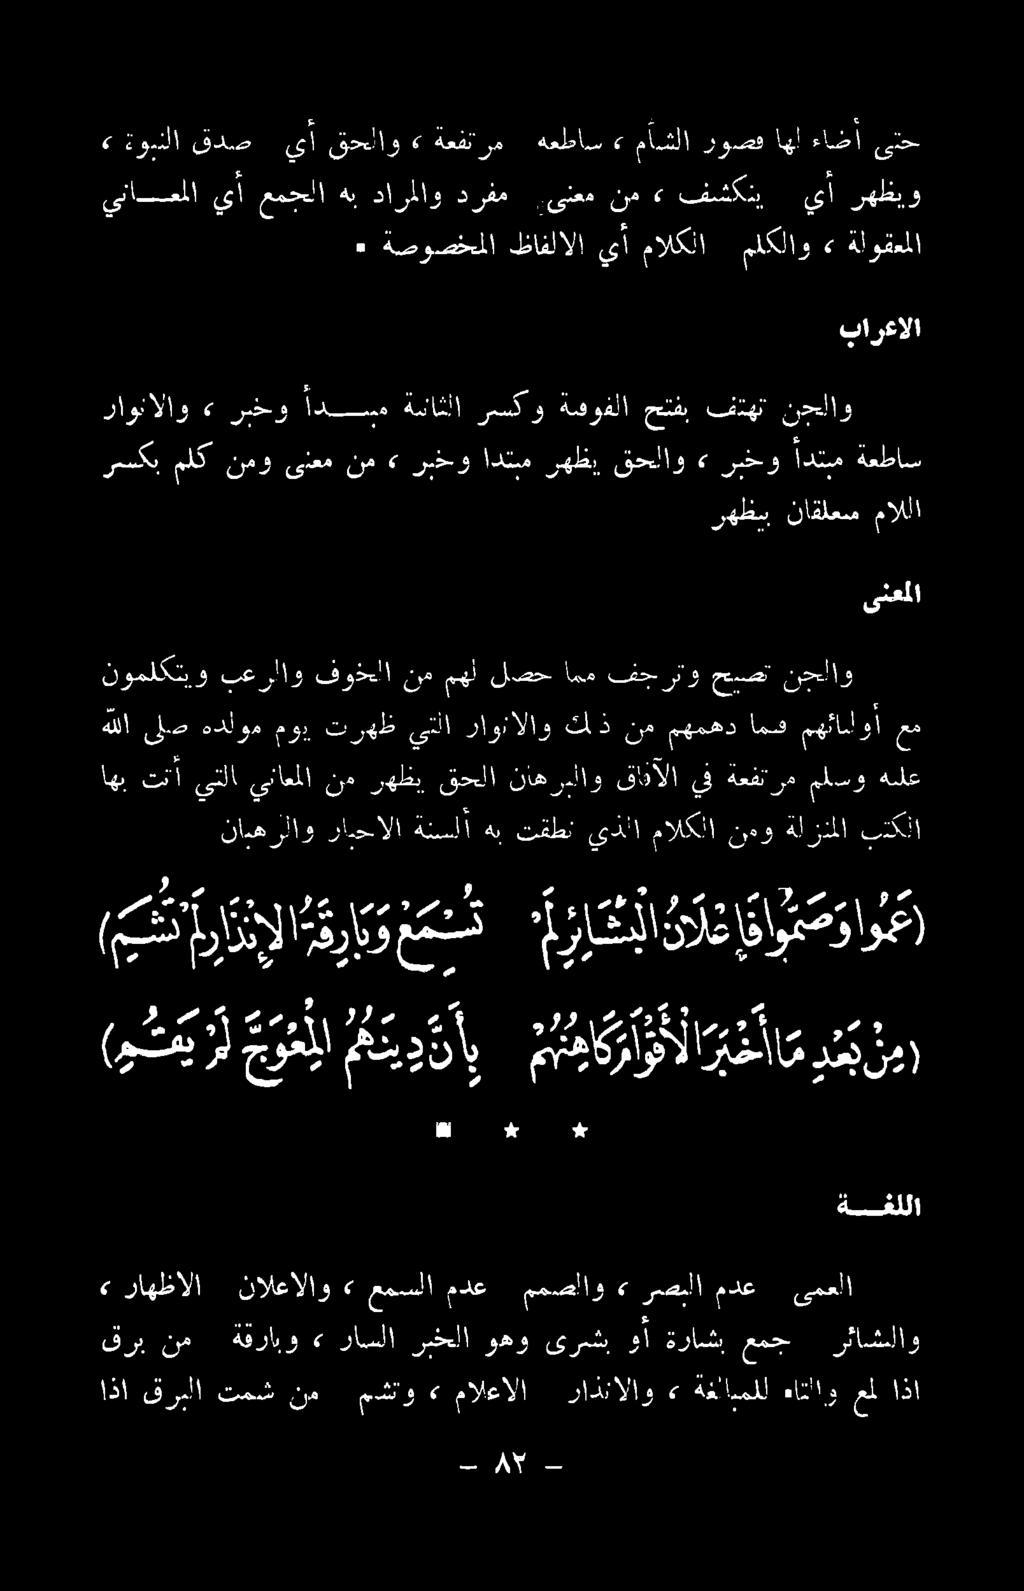 حتى أضاء لها قصور الشآم ، ساطعه مرتفعة ، والحق أي صدق النبوة ،
ويظهر أي ينكشف ، من معنى مفرد والمراد به الجمع أي المعــاني
المعقولة ، والكلم الكلام أي الالفاظ المخصوصة ■
الاعراب
والجن تهتف بفتح الفوقية وكسر الثانية مبتــدأ وخبر ، والانوار
ساطعة مبتدأ وخبر ، والحق يظهر مبتدا وخبر ، من معنى ومن كلم بكسر
اللام متعلقان بيظهر
المعنى
والجن تصيح وترجف مما حصل لهم من الخوف والرعب ويتكلمون
مع أوليائهم فيما دهمهم من ذلك والانوار التي ظهرت يوم مولده صلى الله
عليه وسلم مرتفعة في الآفاق والبرهان الحق يظهر من المعاني التي أتت بها
الكتب المنزلة ومن الكلام الذي نطقت به ألسنة الاحبار والرهبان
(عَمُوا وَصَمُّوا فَإِعْلَانُ الْبَشَائِرِ لَمْ تُسْمَعْ وَبَارِقَةُ الإِنْذَارِ لَمْ تُشَمِ)
(مِنْ بَعْدِ مَا أَخْبَرَ الْأَقْوَامَ كَاهِنُهُمْ بِأَنَّ دِينَهُمُ الْمُعْوَجَّ لَمْ يَقُمِ)
★ ★ ■
اللغــة
العمى عدم البصر ، والصمم عدم السمع ، والاعلان الاظهار ،
والبشائر جمع بشارة أو بشرى وهو الخبر السار ، وبارقة من برق
اذا لمع والتاء للمبالغة ، والانذار الاعلام ، وتشم من شمت البرق اذا
– ٨٢ –